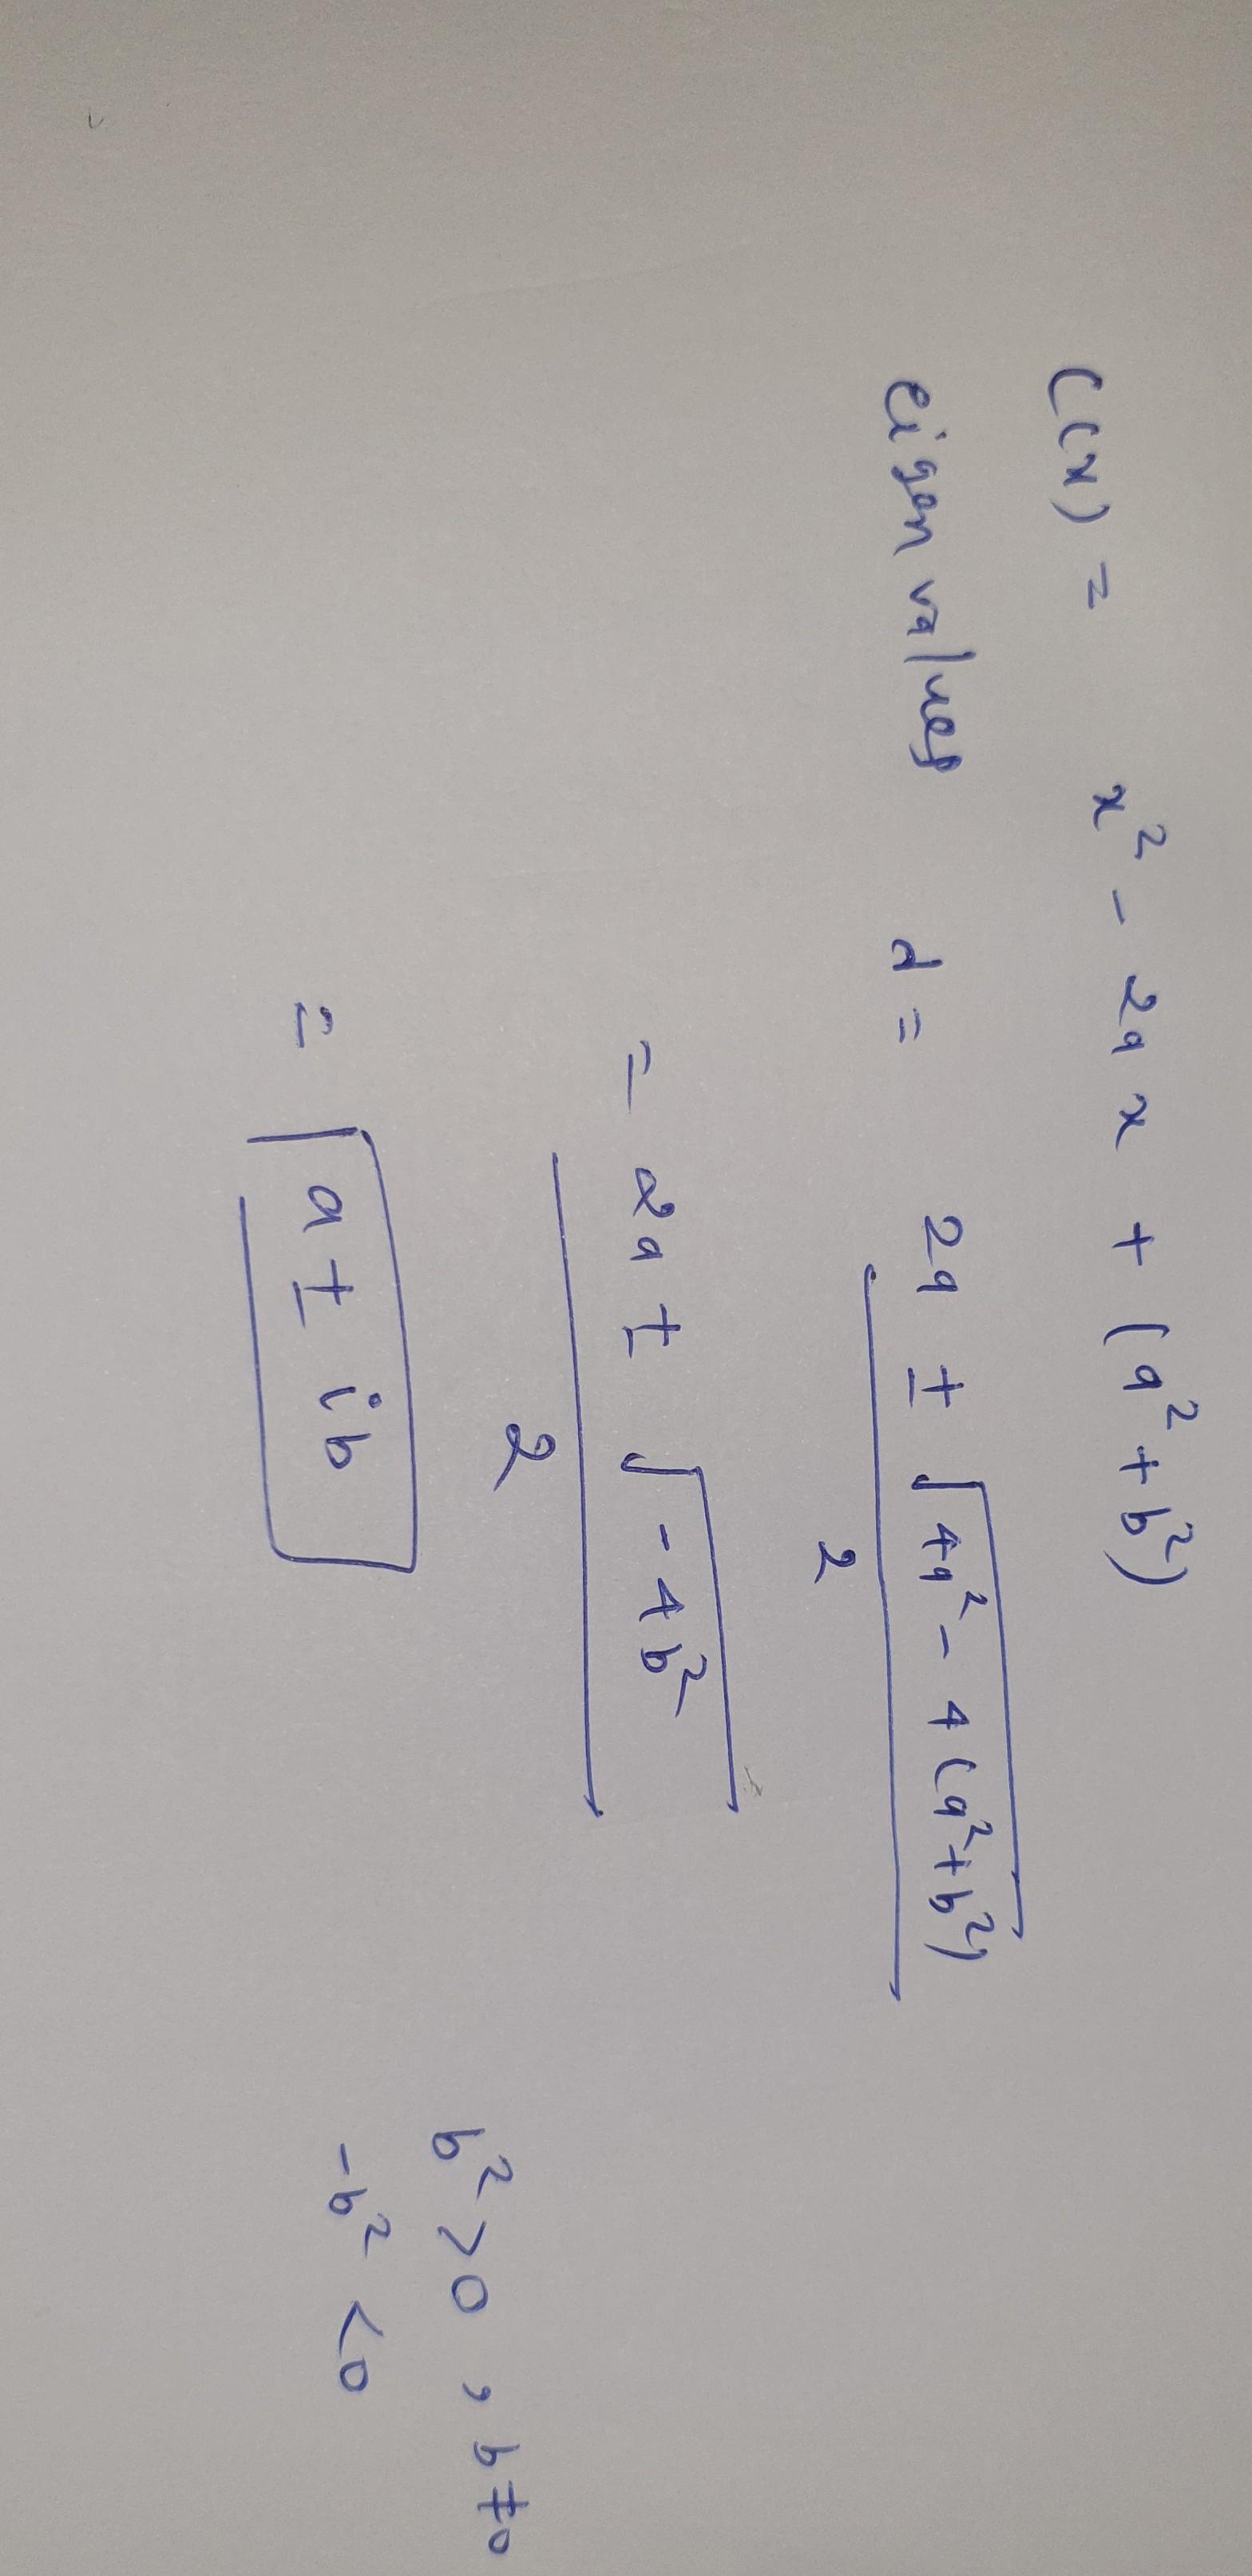 C(x) = x² - 2ax + (a² + b²)
eigen values d = 2a ± √(4a² - 4(a² + b²)) / 2
= 2a ± √(-4b²) / 2
b² > 0, b ≠ 0
-b² < 0
= a ± ib